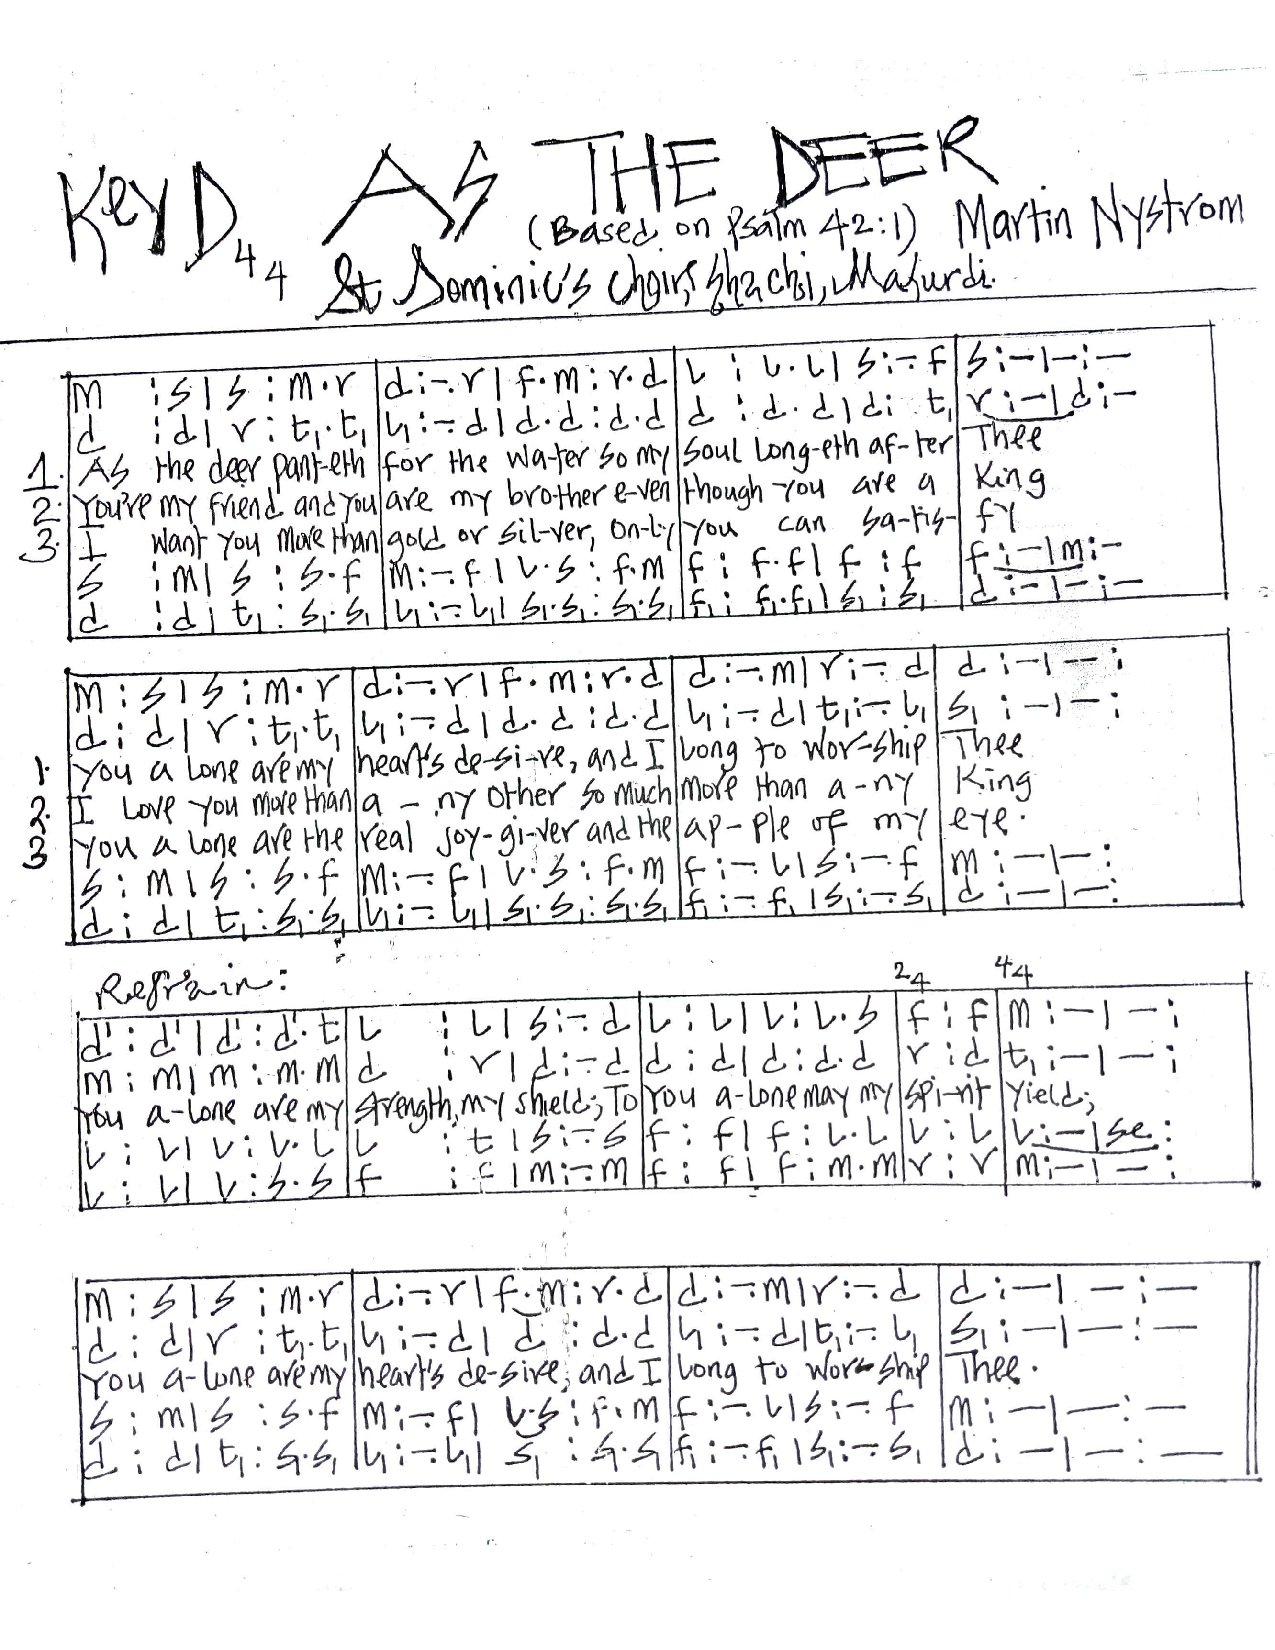 Key D 4 4 AS THE DEER
(Based on Psalm 42:1) Martin Nystrom
St Dominic's Choir,
m :s | s :m.r | d :-.r | f.m :r.d | l : l.l | s :-.f | s :-|-:-
d :d | r :t₁.t₁ | l₁ :-.d | d.d :d.d | d : d.d | d : t₁ | r :-|d :-
1. As the deer pant-eth for the wa-ter so my soul long-eth af-ter Thee
2. You're my friend and you are my bro-ther e-ven though you are a King
3. I want you more than gold or sil-ver, on-ly you can sa-tis- fy
s :m | s :s.f | m :-.f | l.s :f.m | f : f.f | f : f | f :-|m :-
d :d | t₁ :s₁.s₁ | l₁ :-.l₁ | s₁.s₁ :s₁.s₁ | f₁ : f₁.f₁ | s₁ : s₁ | d :-|-:-
m : s | s : m.r | d :-.r | f.m :r.d | d :-.m | r :-.d | d :-|-- :
d : d | r : t₁.t₁ | l₁ :-.d | d.d :d.d | l₁ :-.d | t₁ :-.l₁ | s₁ :-|- :
1. You a lone are my heart's de-si-re, and I long to wor-ship Thee
2. I love you more than a - ny other so much more than a-ny King
3 You a lone are the real joy-gi-ver and the ap-ple of my eye.
s : m | s : s.f | m :-.f | l.s : f.m | f :-.l | s :-.f | m :-|- :
d : d | t₁ : s₁.s₁ | l₁ :-.l₁ | s₁.s₁ : s₁.s₁ | f₁ :-.f₁ | s₁ :-.s₁ | d :-|- :
Refrain: 2 4 4 4
d' : d' | d' : d'.t | l : l | s :-.d | l : l | l : l.s | f : f | m :-|- :
m : m | m : m.m | d : r | d :-.d | d : d | d : d.d | r : d | t₁ :-|- :
You a-lone are my strength, my shield; To You a-lone may my spi-rit yield;
l : l | l : l.l | l : t | s :-.s | f : f | f : l.l | l : l | l :-|se :
l : l | l : s.s | f : f | m :-.m | f : f | f : m.m | r : r | m :-|- :
m : s | s : m.r | d :-.r | f.m : r.d | d :-.m | r :-.d | d :-|- :-
d : d | r : t₁.t₁ | l₁ :-.d | d : d.d | l₁ :-.d | t₁ :-.l₁ | s₁ :-|- :-
You a-lone are my heart's de-sire, and I long to wor-ship Thee.
s : m | s : s.f | m :-.f | l.s : f.m | f :-.l | s :-.f | m :-|- :-
d : d | t₁ : s₁.s₁ | l₁ :-.l₁ | s₁ : s₁.s₁ | f₁ :-.f₁ | s₁ :-.s₁ | d :-|- :-